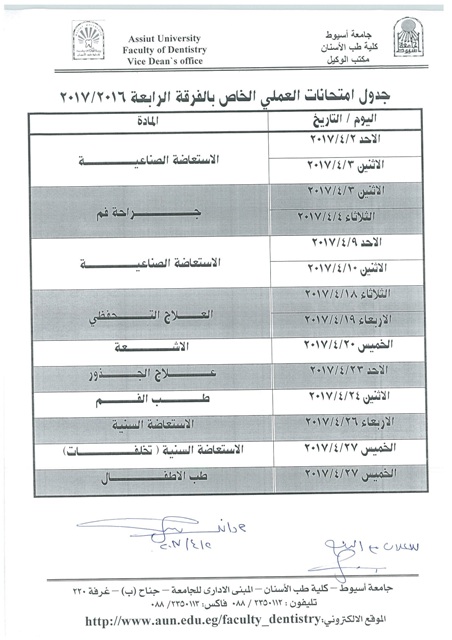 جامعة أسيوط
كلية طب الأسنان
مكتب الوكيل
Assiut University
Faculty of Dentistry
Vice Dean's office
جدول امتحانات العملي الخاص بالفرقة الرابعة ٢٠١٧/٢٠١٦
اليوم / التاريخ المادة
الاحد ٢٠١٧/٤/٢
الاثنين ٢٠١٧/٤/٣
الاستعاضة الصناعية
الاثنين ٢٠١٧/٤/٣
الثلاثاء ٢٠١٧/٤/٤
جراحة فم
الاحد ٢٠١٧/٤/٩
الاثنين ٢٠١٧/٤/١٠
الاستعاضة الصناعية
الثلاثاء ٢٠١٧/٤/١٨
الاربعاء ٢٠١٧/٤/١٩
العلاج التحفظي
الخميس ٢٠١٧/٤/٢٠ الاشعة
الاحد ٢٠١٧/٤/٢٣ علاج الجذور
الاثنين ٢٠١٧/٤/٢٤ طب الفم
الاربعاء ٢٠١٧/٤/٢٦ الاستعاضة السنية
الخميس ٢٠١٧/٤/٢٧ الاستعاضة السنية (تخلفات)
الخميس ٢٠١٧/٤/٢٧ طب الاطفال
جامعة أسيوط – كلية طب الأسنان – المبنى الادارى للجامعة – جناح (ب) – غرفة ٢٢٠
تليفون : ٢٣٥٠١١٣ / ٠٨٨ فاكس: ٢٣٥٠١١٢ / ٠٨٨
الموقع الالكتروني: http://www.aun.edu.eg/faculty_dentistry